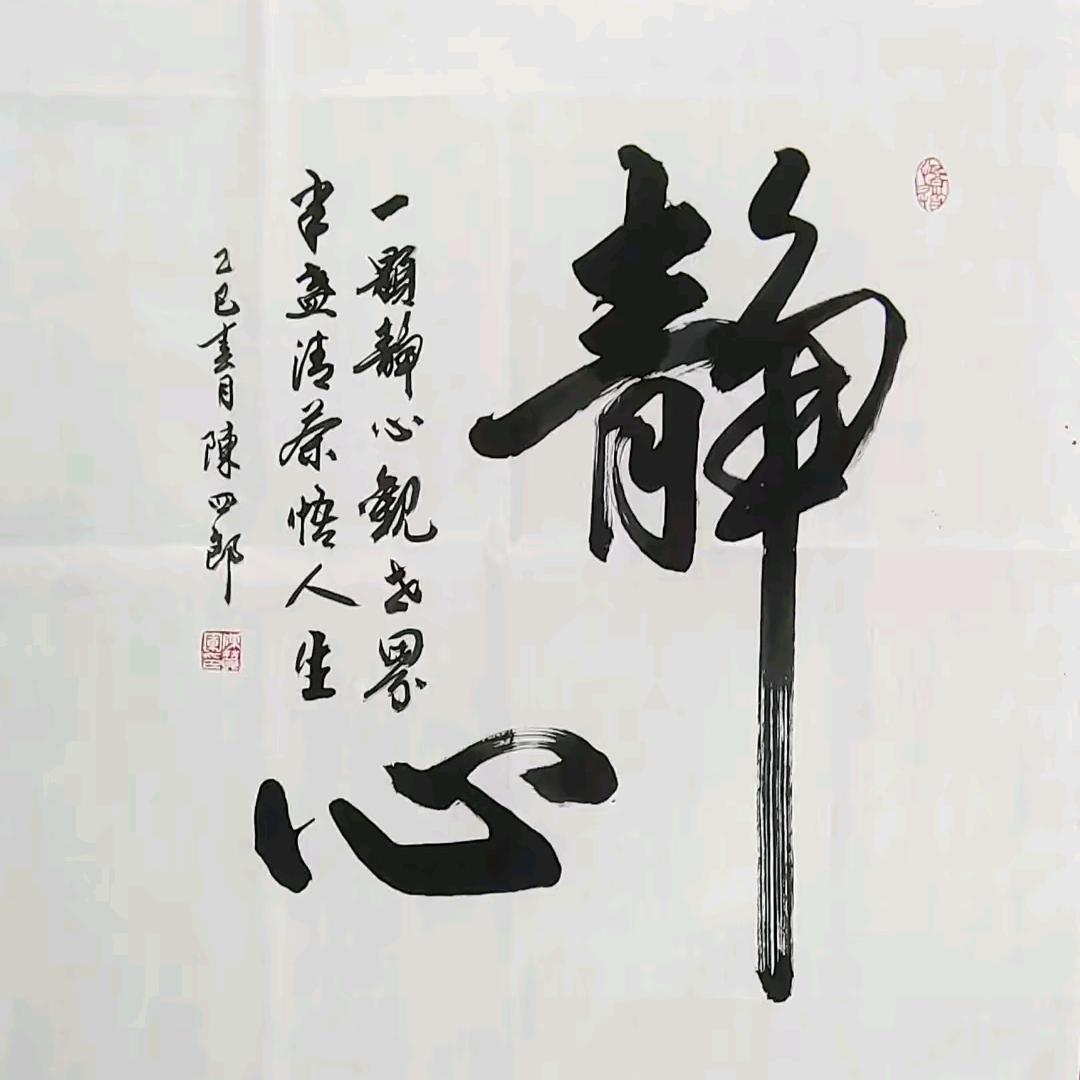 靜心
一顆靜心觀世界
半盞清茶悟人生
乙巳春月陳四郎